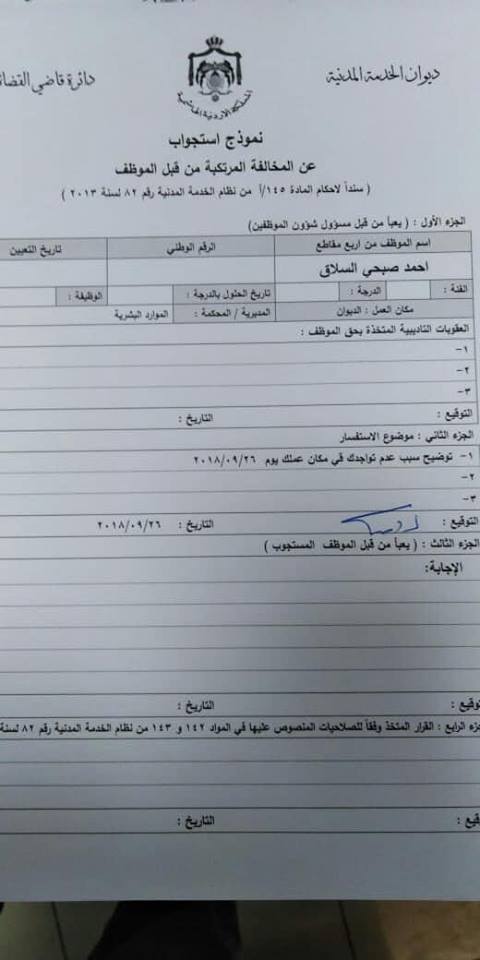 ديوان الخدمة المدنية
دائرة قاضي القضا
المملكة الاردنية الهاشمية
نموذج استجواب
عن المخالفة المرتكبة من قبل الموظف
( سنداً لاحكام المادة ١٤٥/أ من نظام الخدمة المدنية رقم ٨٢ لسنة ٢٠١٣ )
الجزء الأول : ( يعبأ من قبل مسؤول شؤون الموظفين)
اسم الموظف من اربع مقاطع الرقم الوطني تاريخ التعيين
احمد صبحي السلاق
الفئة : الدرجة : تاريخ الحلول بالدرجة : الوظيفة :
مكان العمل : الديوان المديرية / المحكمة : الموارد البشرية
العقوبات التاديبية المتخذة بحق الموظف :
١-
٢-
٣-
التوقيع : التاريخ :
الجزء الثاني : موضوع الاستفسار
١- توضيح سبب عدم تواجدك في مكان عملك يوم ٢٠١٨/٠٩/٢٦
٢-
٣-
التوقيع : التاريخ : ٢٠١٨/٠٩/٢٦
الجزء الثالث : ( يعبأ من قبل الموظف المستجوب )
الإجابة:
توقيع : التاريخ :
جزء الرابع : القرار المتخذ وفقاً للصلاحيات المنصوص عليها في المواد ١٤٢ و ١٤٣ من نظام الخدمة المدنية رقم ٨٢ لسنة
قيع : التاريخ :